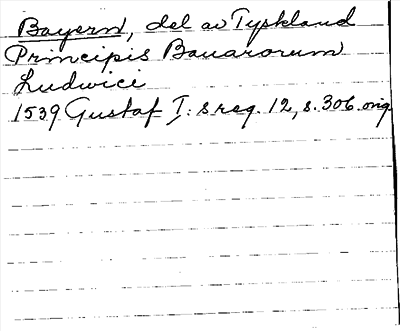 Bayern, del av Tyskland
Principis Bauarorum
Ludwici
1539 Gustaf I: s reg. 12, s. 306 orig.